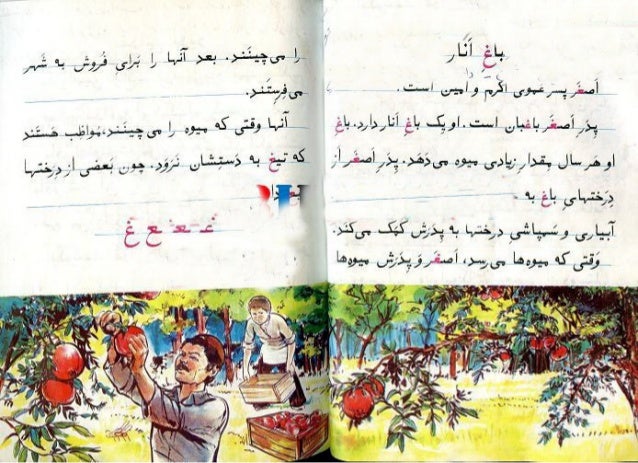 باغِ اَنار
اَصغَر پسر عموی اکرَم و اَمین است.
پدَرِ اَصغَر باغبان است. او یک باغِ اَنار دارد. باغِ
او هر سال مِقدارِ زیادی میوه می دَهَد. پدَرِ اَصغَر از
دِرَختهایِ باغ به
آبیاری و سَمپاشی درختها به پدَرَش کُمَک می کند.
وَقتی که میوه ها می رسد، اَصغَر وَ پدَرَش میوه ها
را می چینَند. بعد آنها را بَرایِ فُروش به شَهر
می فِرستَند.
آنها وَقتی که میوه را می چینند، مُواظِب هَستَند
که تیغ به دَستِشان نَرَوَد. چون بَعضی از دِرَختها
غـ ـغـ ـغ غ